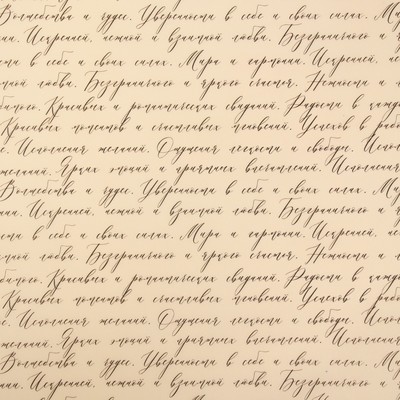 Волшебства и чудес. Уверенности в себе и своих силах. Ми
ания. Искренней, нежной и взаимной любви. Безграничного и
сти в себе и своих силах. Мира и гармонии. Искренней, не
ной любви. Безграничного и яркого счастья. Нежности и
бимого. Красивых и романтических свиданий. Радости в кажд
Красивых моментов и счастливых мгновений. Успехов в рабо
е. Исполнения желаний. Ощущения легкости и свободы. Ис
желаний. Ярких эмоций и приятных впечатлений. Исполнения
Волшебства и чудес. Уверенности в себе и своих силах. Ми
ания. Искренней, нежной и взаимной любви. Безграничного и ч
сти в себе и своих силах. Мира и гармонии. Искренней, не
ной любви. Безграничного и яркого счастья. Нежности и
бимого. Красивых и романтических свиданий. Радости в кажд
Красивых моментов и счастливых мгновений. Успехов в рабо
е. Исполнения желаний. Ощущения легкости и свободы. Испол
желаний. Ярких эмоций и приятных впечатлений. Исполнения
Волшебства и чудес. Уверенности в себе и своих силах. Ми
ания. Искренней, нежной и взаимной любви. Безграничного и